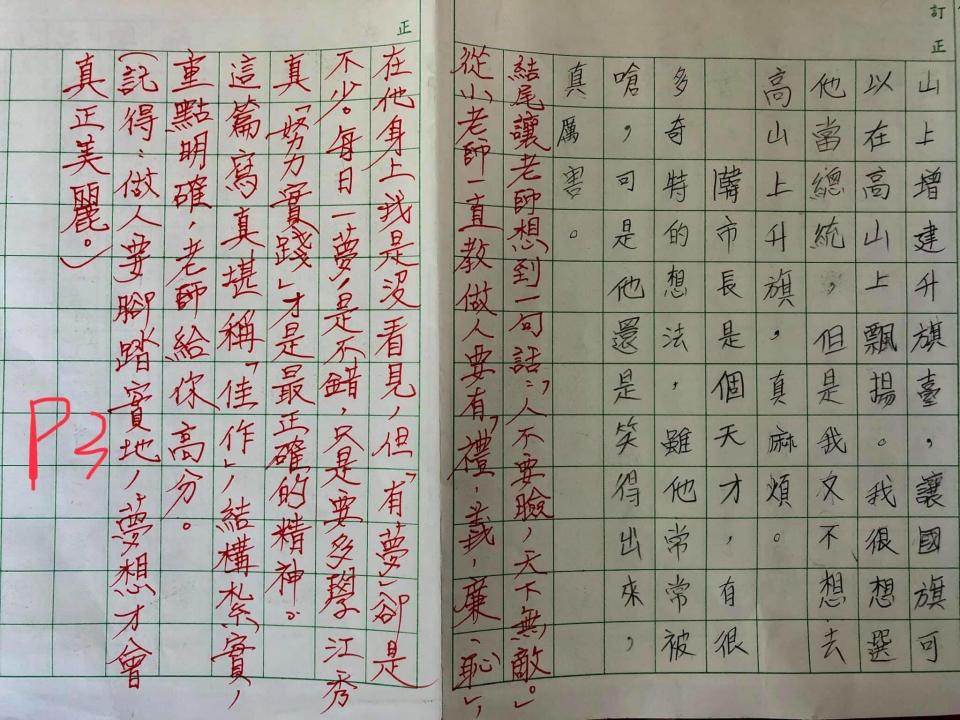 訂正
山上增建升旗臺，讓國旗可
以在高山上飄揚。我很想選
他當總統，但是我又不想去
高山上升旗，真麻煩。
韓市長是個天才，有很
多奇特的想法，雖他常常被
嗆，可是他還是笑得出來，
真厲害。
結尾讓老師想到一句話：「人不要臉，天下無敵。」
從小老師一直教做人要有「禮、義、廉、恥」，
正
在他身上我是沒看見，但「有夢」卻是
不少。每日一夢，是不錯，只是要多學江秀
真「努力實踐」才是最正確的精神。
這篇寫真堪稱「佳作」，結構紮實，
重點明確，老師給你高分。
（記得：做人要腳踏實地，夢想才會
真正美麗。）
P3